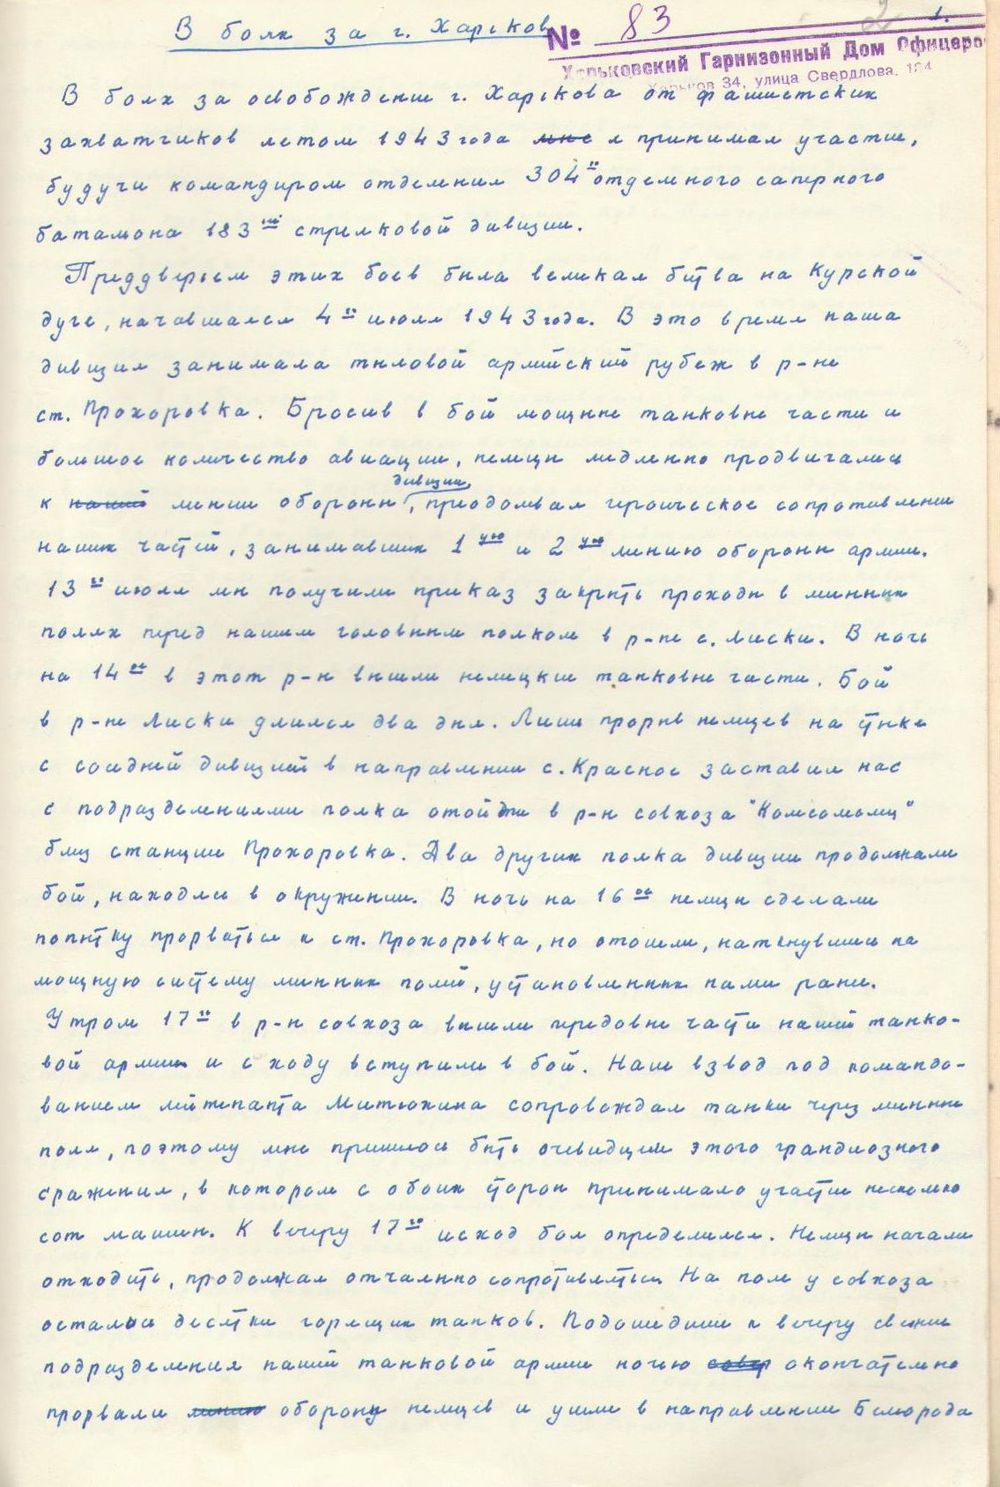 В боях за г. Харьков
№ 83
2
1.
Харьковский Гарнизонный Дом Офицеров
Харьков 34, улица Свердлова, 184
В боях за освобождение г. Харькова от фашистских
захватчиков летом 1943 года мне я принимал участие,
будучи командиром отделения 304го отдельного саперного
батальона 183ей стрелковой дивизии.
Преддверьем этих боев была великая битва на Курской
дуге, начавшаяся 4го июля 1943 года. В это время наша
дивизия занимала тыловой армейский рубеж в р-не
ст. Прохоровка. Бросив в бой мощные танковые части и
большое количество авиации, немцы медленно продвигались
к нашей линии обороны дивизии, преодолевая героическое сопротивление
наших частей, занимавших 1ую и 2ую линию обороны армии.
13го июля мы получили приказ закрыть проходы в минных
полях перед нашим головным полком в р-не с. Лиски. В ночь
на 14ое в этот р-н вышли немецкие танковые части. Бой
в р-не Лиски длился два дня. Лишь прорыв немцев на стыке
с соседней дивизией в направлении с. Красное заставил нас
с подразделениями полка отойти в р-н совхоза "Комсомолец"
близ станции Прохоровка. Два других полка дивизии продолжали
бой, находясь в окружении. В ночь на 16ое немцы сделали
попытку прорваться к ст. Прохоровка, но отошли, наткнувшись на
мощную систему минных полей, установленных нами ранее.
Утром 17го в р-н совхоза вышли передовые части нашей танко-
вой армии и с ходу вступили в бой. Наш взвод под командо-
ванием лейтенанта Митюхина сопровождал танки через минные
поля, поэтому мне пришлось быть очевидцем этого грандиозного
сражения, в котором с обоих сторон принимало участие несколько
сот машин. К вечеру 17го исход боя определился. Немцы начали
отходить, продолжая отчаянно сопротивляться. На поле у совхоза
остались десятки горящих танков. Подошедшие к вечеру свежие
подразделения нашей танковой армии ночью окончательно
прорвали линию оборону немцев и ушли в направлении Белгорода